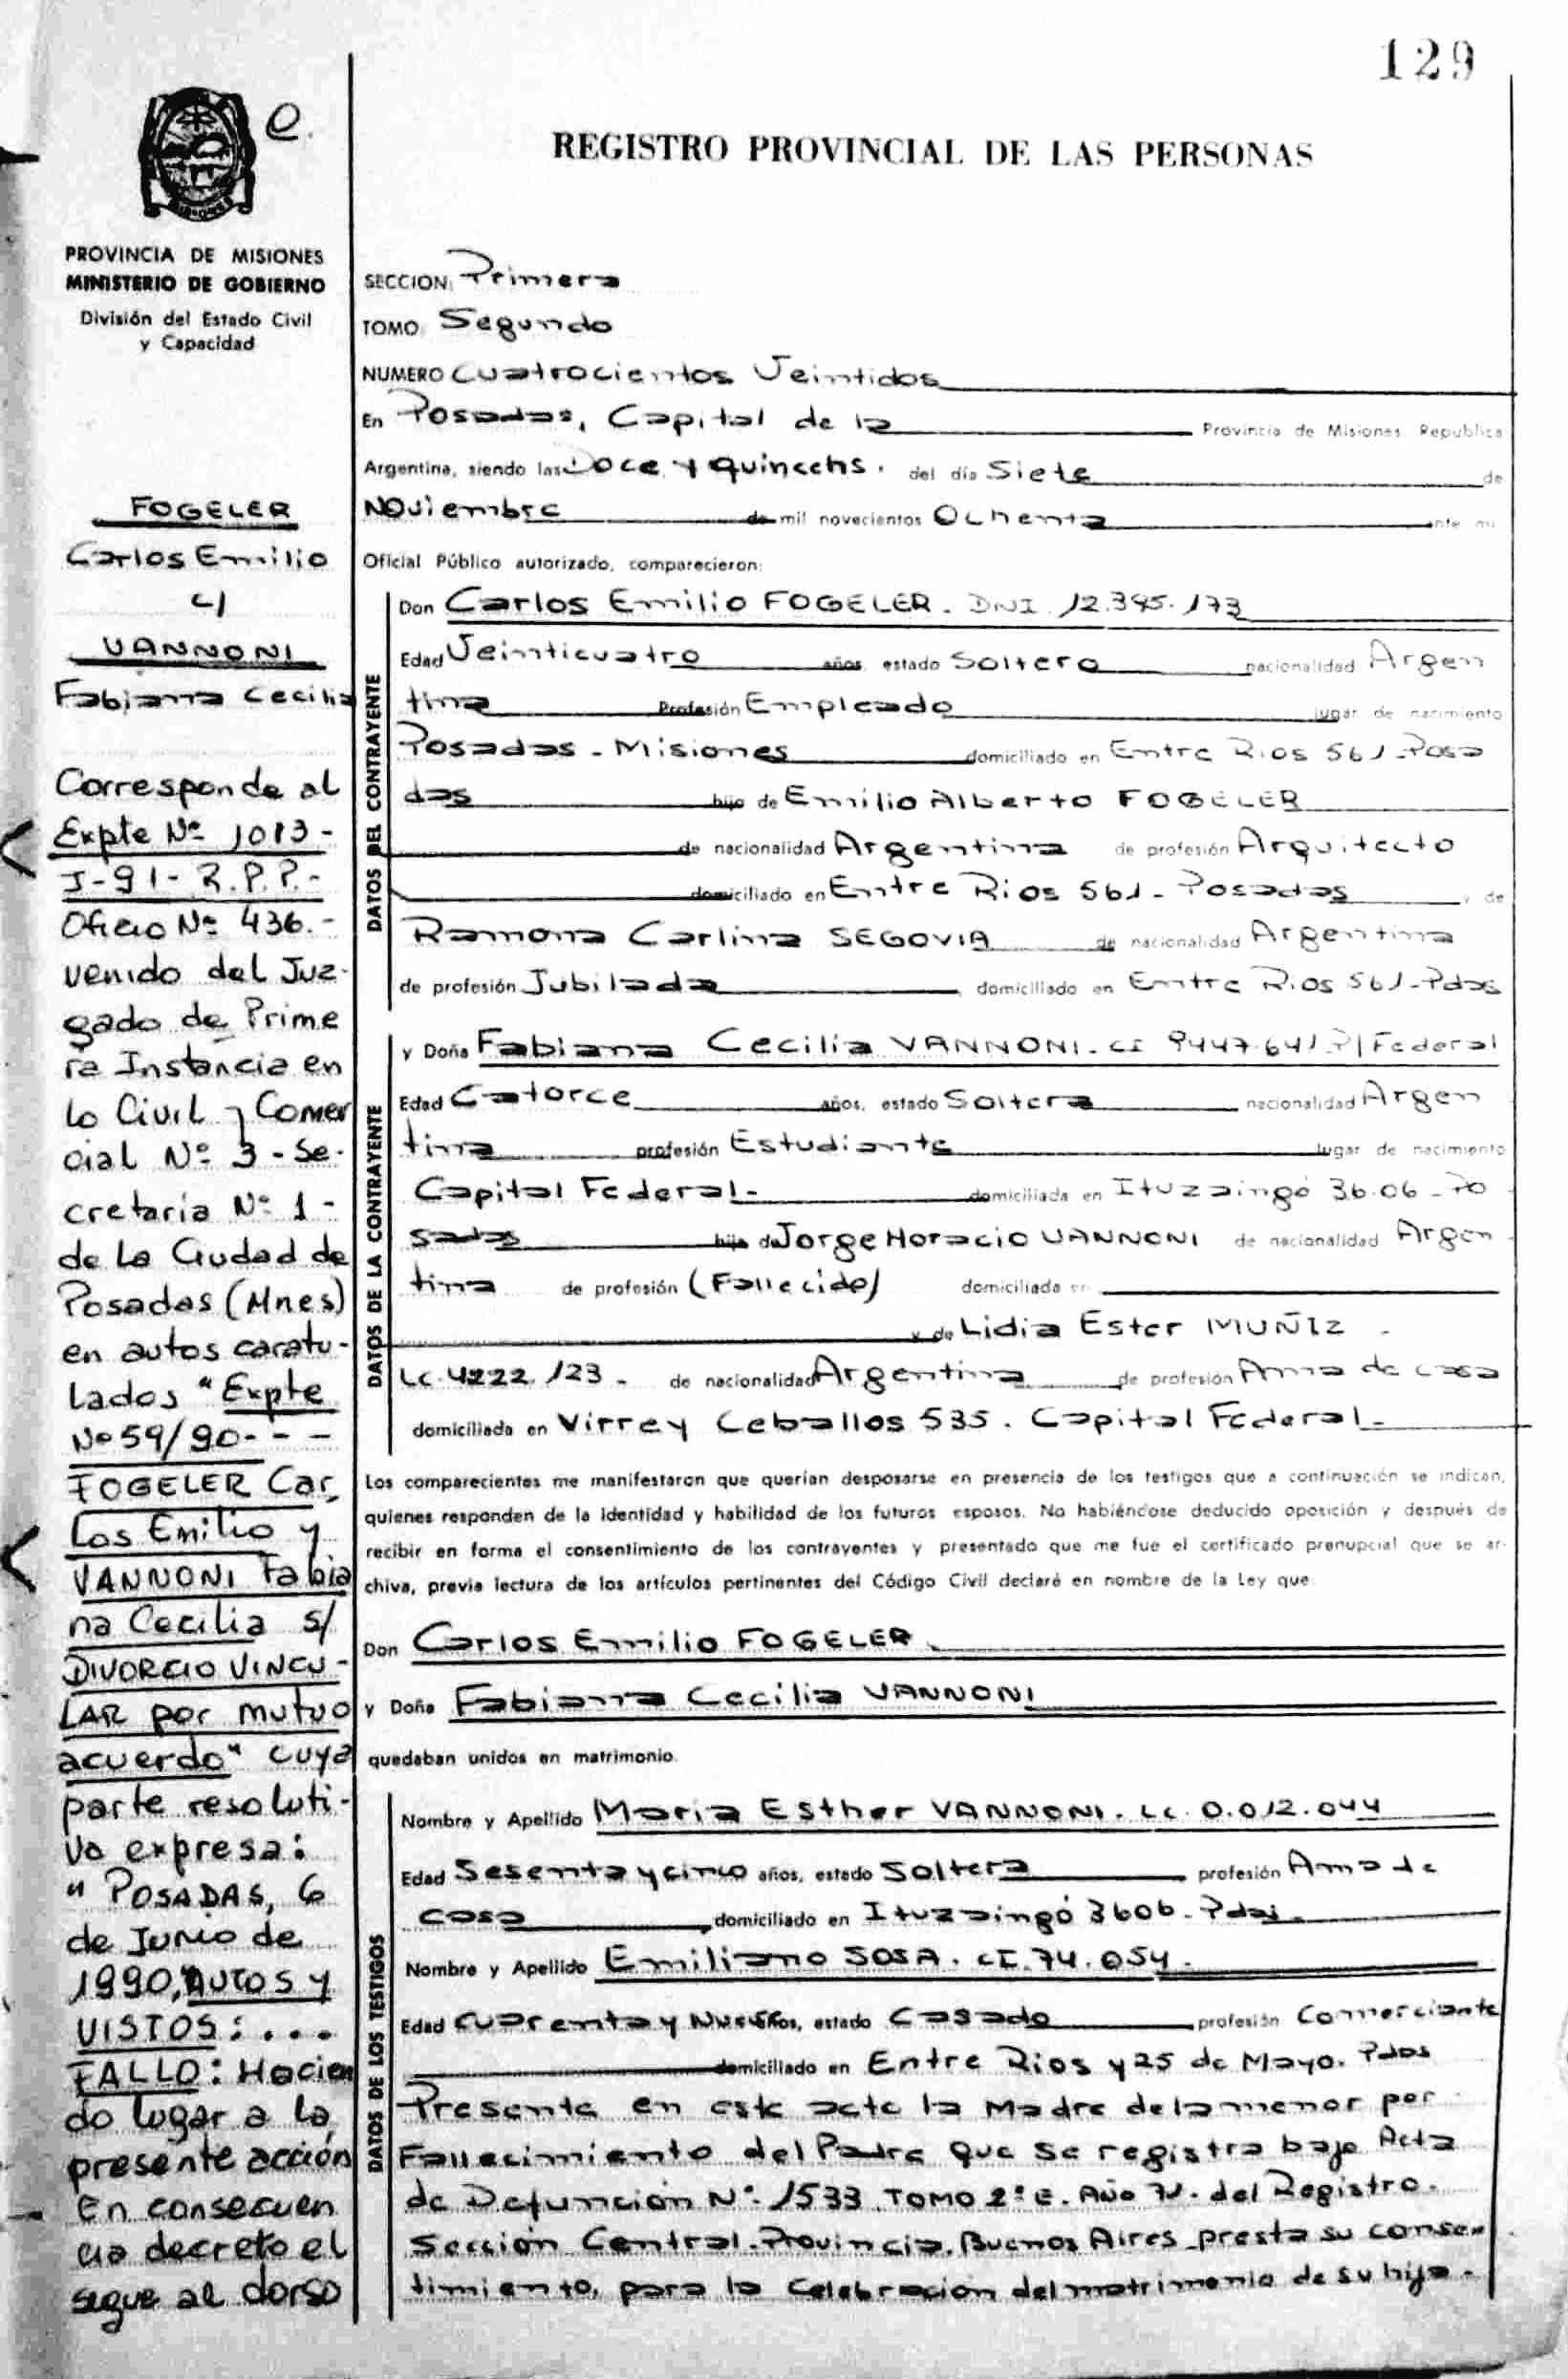 129
e.
REGISTRO PROVINCIAL DE LAS PERSONAS
MISIONES
PROVINCIA DE MISIONES
MINISTERIO DE GOBIERNO
División del Estado Civil
y Capacidad
FOGELER
Carlos Emilio
c/
VANNONI
Fabiana Cecilia
Corresponde al
Expte Nº 1013-
J-91- R.P.P.-
Oficio Nº 436.-
venido del Juz-
gado de Prime
ra Instancia en
lo Civil y Comer
cial Nº 3 - Se-
cretaría Nº 1 -
de la Ciudad de
Posadas (Mnes)
en autos caratu-
lados "Expte
Nº 59/90- - -
FOGELER Car,
los Emilio y
VANNONI Fabia
na Cecilia s/
DIVORCIO VINCU-
LAR por mutuo
acuerdo" cuya
parte resoluti-
va expresa:
" POSADAS, 6
de Junio de
1990, AUTOS y
VISTOS: ...
FALLO: Hacien
do lugar a la
presente acción
En consecuen
cia decreto el
sigue al dorso
SECCION: Primera
TOMO: Segundo
NUMERO Cuatrocientos Veintidos
En Posadas, Capital de la Provincia de Misiones Republica
Argentina, siendo las Doce y quince hs. del día Siete de
Noviembre de mil novecientos Ochenta ante mi
Oficial Público autorizado, comparecieron:
DATOS DEL CONTRAYENTE
Don Carlos Emilio FOGELER. DNI 12.395.173
Edad Veinticuatro años estado Soltero nacionalidad Argen
tina Profesión Empleado lugar de nacimiento
Posadas - Misiones domiciliado en Entre Rios 561 - Posa
das hijo de Emilio Alberto FOGELER
de nacionalidad Argentina de profesión Arquitecto
domiciliado en Entre Rios 561 - Posadas y de
Ramona Carlina SEGOVIA de nacionalidad Argentina
de profesión Jubilada domiciliado en Entre Rios 561-Pdas
DATOS DE LA CONTRAYENTE
y Doña Fabiana Cecilia VANNONI. CI 9447.641 P/Federal
Edad Catorce años, estado Soltera nacionalidad Argen
tina profesión Estudiante lugar de nacimiento
Capital Federal- domiciliada en Ituzaingó 36.06 - Po
sadas hija de Jorge Horacio VANNONI de nacionalidad Argen
tina de profesión (Fallecido) domiciliada en
y de Lidia Ester MUÑIZ -
LC. 4222.123 - de nacionalidad Argentina de profesión Ama de casa
domiciliada en Virrey Ceballos 535. Capital Federal-
Los comparecientes me manifestaron que querían desposarse en presencia de los testigos que a continuación se indican,
quienes responden de la identidad y habilidad de los futuros esposos. No habiéndose deducido oposición y después de
recibir en forma el consentimiento de los contrayentes y presentado que me fue el certificado prenupcial que se ar-
chiva, previa lectura de los artículos pertinentes del Código Civil declaré en nombre de la Ley que:
Don Carlos Emilio FOGELER.
y Doña Fabiana Cecilia VANNONI
quedaban unidos en matrimonio.
DATOS DE LOS TESTIGOS
Nombre y Apellido Maria Esther VANNONI. LC. 0.012.044
Edad Sesenta y cinco años, estado Soltera profesión Ama de
casa domiciliado en Ituzaingó 3606 - Pdas.
Nombre y Apellido Emiliano SOSA. CI. 74.054.
Edad Cuarenta y Nueve años, estado Casado profesión Comerciante
domiciliado en Entre Rios y 25 de Mayo. Pdas
Presente en este acto la Madre de la menor por
Fallecimiento del Padre que se registra bajo Acta
de Defunción Nº 1533 Tomo 2º E. Año 71. del Registro.
Sección Central. Provincia. Buenos Aires presta su consen
timiento, para la celebración del matrimonio de su hija.